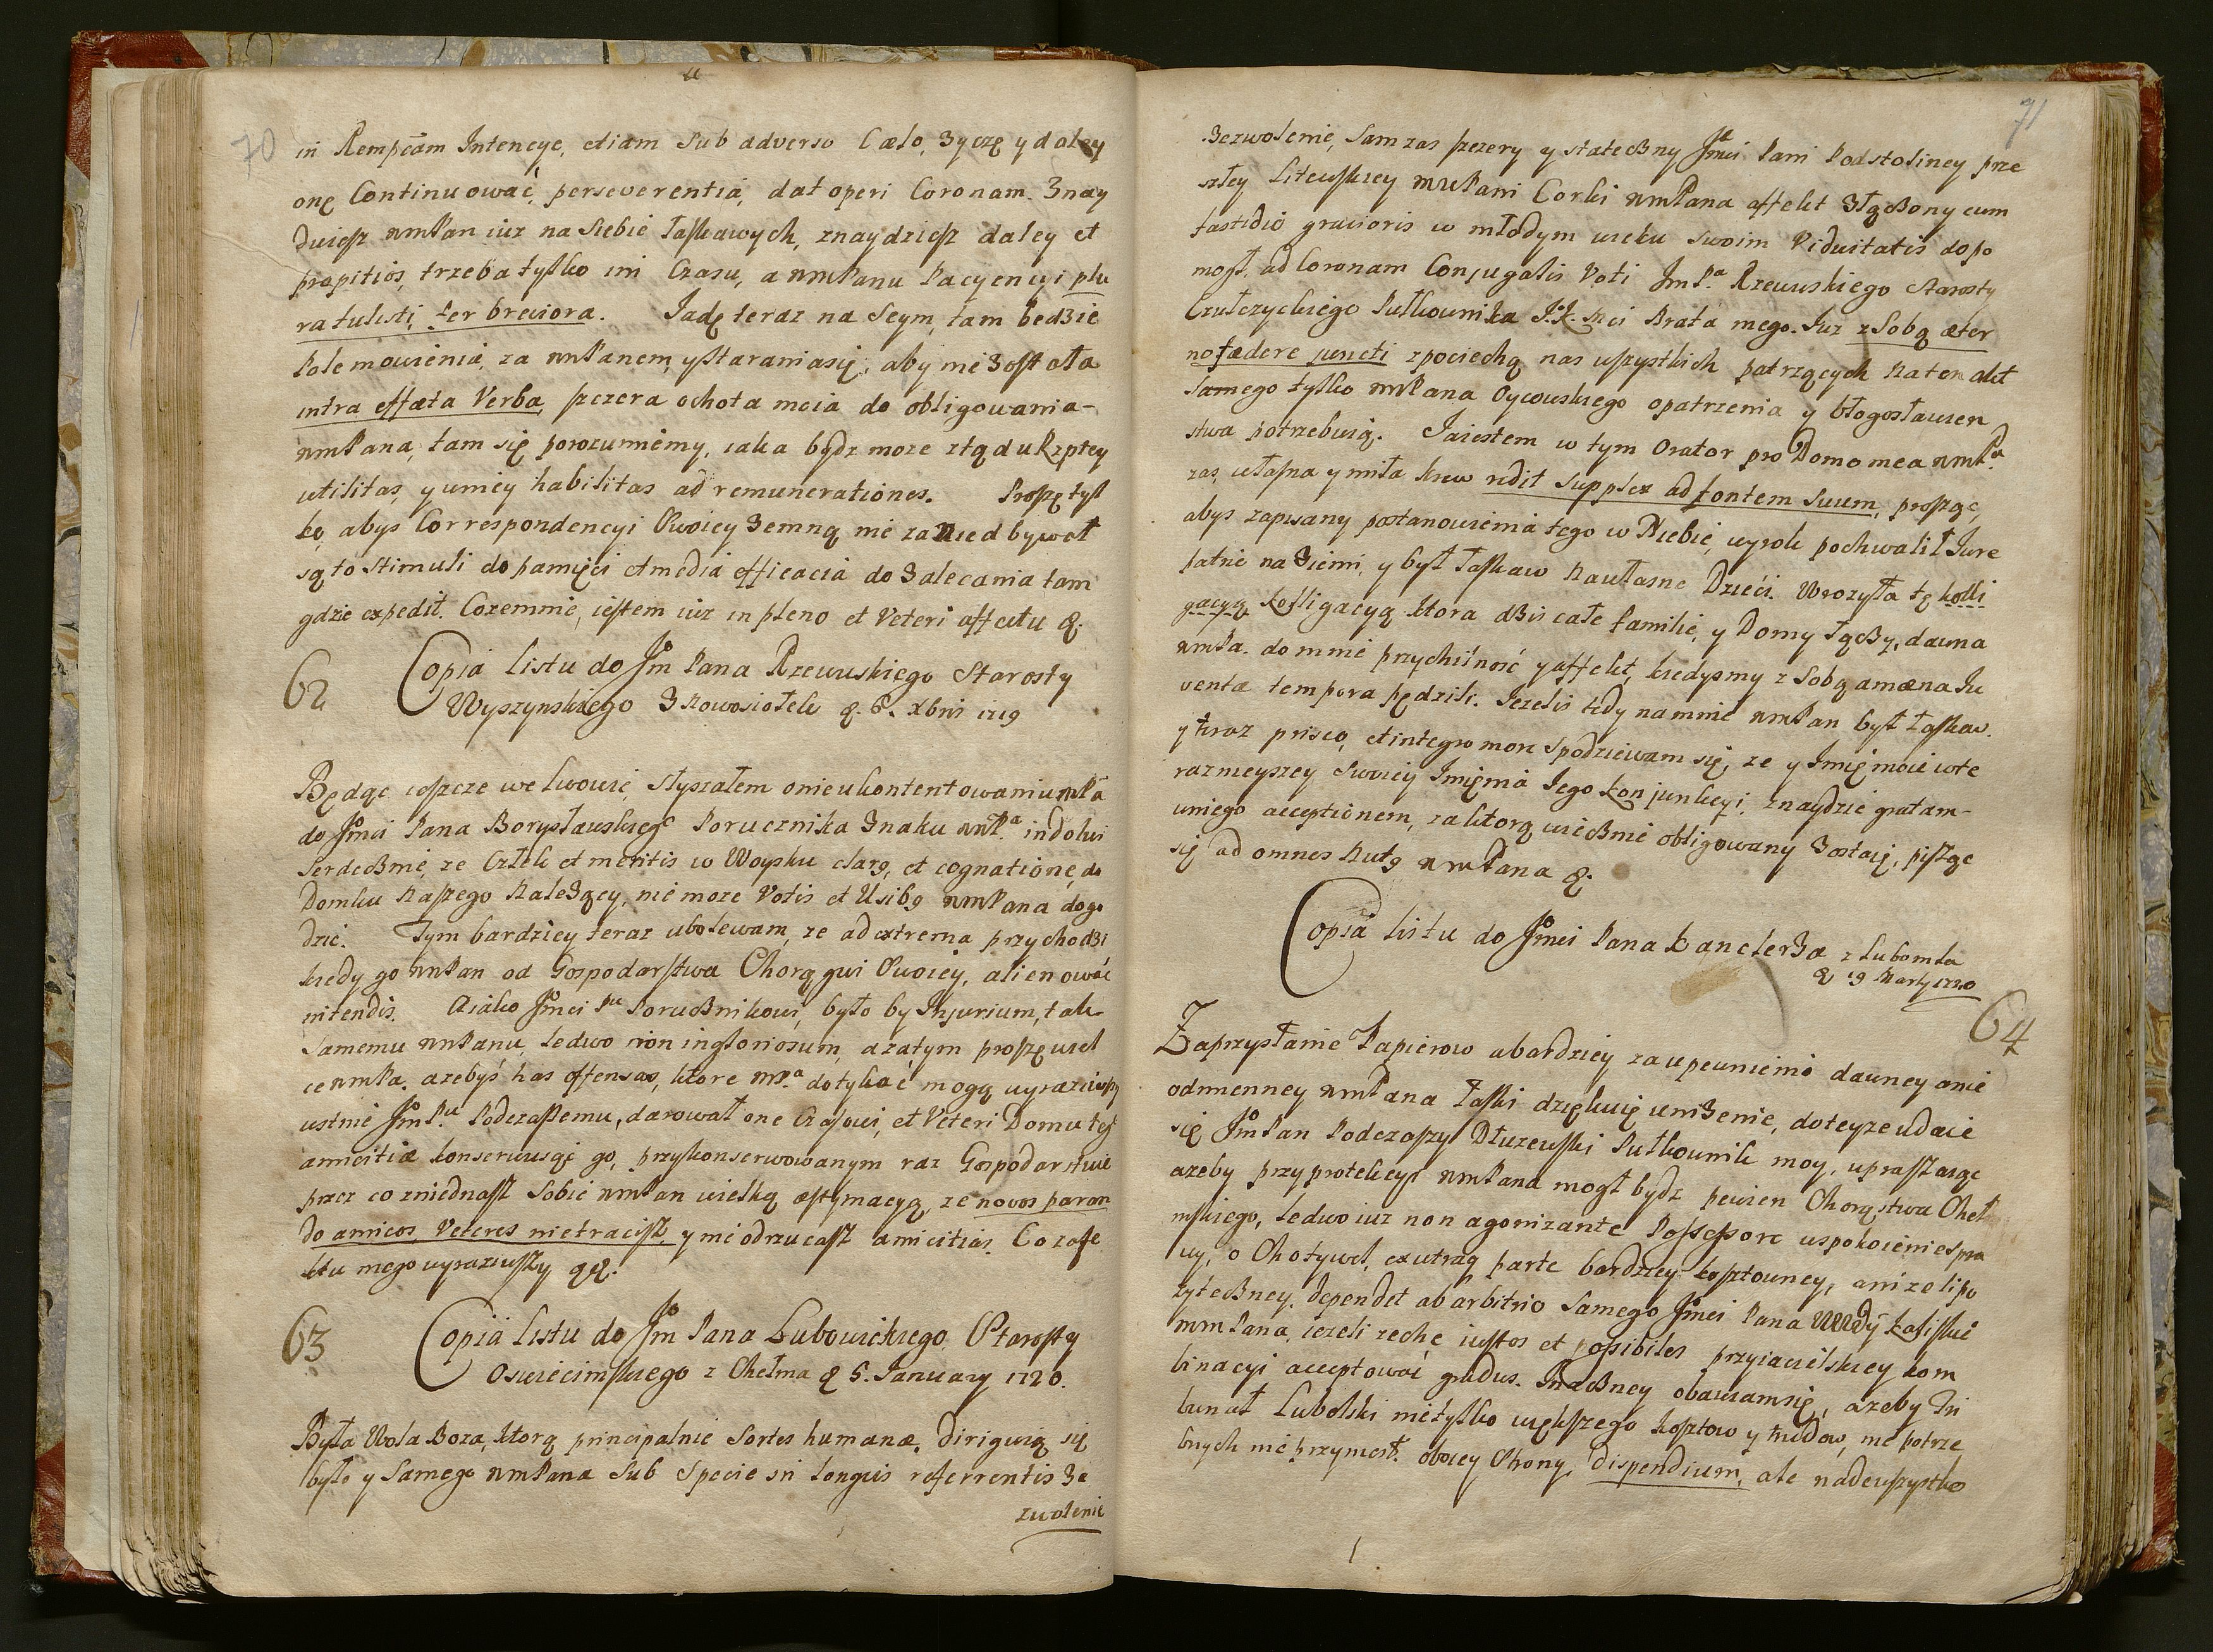 70
in Rempcam Intencyę, etiam sub adverso Cælo, zyczę y daley
onę Continuować, perseverentiá, dat operi Coronam. Znay
duiesz wmPan iuz na siebie łaskawych, znaydziesz daley et
propitios, trzeba tylko im Czasu, a wmPanu Pacyencyi plu
ra tulisti, fer breviora. Jadę teraz na Seym, tam bedzie
Pole mowienia, za wmPanem, y starania się, aby nie Została
intra effata Verba, szczera ochota moia do obligowania
wmPana, tam się porozumiemy, iaka bydz moze ztądu Rzptey
utilitas, y umiey habilitas ad remunerationes. Proszę tyl
ko, abys Correspondencyi Swoiey Zemną nie zaniedbywał
są to stimuli do pamięci et media efficacia do Zalecania tam
gdzie expedit. Cozemnie, iestem iuz in pleno et Veteri affectu &.
62
Copia listu do Jm Pana Rzewuskiego Starosty
Wyszynskiego Z Nowosiołek &. 6. Xbris 1719
Będąc ieszcze we Lwowie, słyszałem o nieukontentowaniu wmPa
do Jmci Pana Borysławskieg Porucznika Znaku wmP.a indolui
Serdecznie, ze Człek et meritis w Woysku clarg, et cognatione, do
Domku Naszego Nalezący, nie moze Votis et Usibg wmPana dogo
dzić. Tym bardziey teraz ubolewam, ze ad extrema przychodzi
kiedy go wmPan od Gospodarstwa Chorągwi Swoiey, alienować
intendis. A iako Jmci Pu Porucznikowi, było by Injurium, tak
Samemu wmPanu, ledwo non ingloriosum, a zatym proszę wiel
ce wmPa. azebyś has offensas, ktore wmP.a dotykać mogą wyraziwszy
ustnie Jm P.u Podczaszemu, darował one Czasowi, et Veteri Domu tej
amicitiæ konserwuiąc go, przykonserwowanym raz Gospodarstwie
przez co zniednasz Sobie wmPan wielką æstymacyą, ze novos paran
do amicos, Veteres nietracisz, y nie odrzucasz amicitias. Co zafe
ktu mego wyraziwszy &&.
63
Copia listu do Jm Pana Lubowickiego Starosty
Oswiecimskiego z Chełma & 5. January 1720.
Była Wola Boza, ktorą principalnie Sortes humanæ, dirigują się
było y Samego wmPana Sub Specie in longuis referrentis Ze
zwolenie
71
Zezwolenie, Sam zas szczery y stateczny Jmci Pani Podstoliney prze
szłey Litewskiey mwPani Corki wmPana affekt Złączony cum
fastidio gravioris w młodym wieku swoim Viduitatis dopo
mogł, ad Coronam Conjugalis Voti Jm P.a Rzewuskiego Starosty
Czułczyckiego Pułkownika J.K. Mci Brata mego. Juz z Sobą æter
no fædere juncti z pociechą nas wszystkich patrzących Na ten akt
Samego tylko wmPana Oycowskiego opatrzenia y błogosławien
stwa potrzebuią. Ja iestem w tym Orator pro Domo mea wmP.a
zas, własna y miła krew redit supplex ad fontem Suum, prosząc,
abys zapisany postanowienia tego w Niebie, wyrok pochwalił Jure
patrio na Ziemi, y był łaskaw Na własne Dzieci. Wrozyła tę kolli
gacyą kolligacyą ktora dzis całe familie, y Domy łączy, dawna
wmPa. do mnie przychilność y affekt, kiedysmy z Sobą amæna Ju
ventæ tempora pędzili. Jezelis tedy na mnie wmPan był łaskaw.
y teraz prisco, et integro more Spodziewam się, ze y Imię moie wte
raznieyszey Swoiey Imięmia Jego konjunkcyi znaydzie gratam
uniego acceptionem, za ktorą wiecznie obligowany Zostaię, pisząc
się ad omnes Nutg wmPana &.
Copia listu do Jmci Pana Kanclerza z Lubomla
& 19 Marty 1720
64
Za przysłanie Papierow a bardziey za upewnienie dawney anie
odmienney wmPana Łaski dziękuię unizenie, do teyze udaie
się Jm Pan Podczaszy Dłuzewski Pułkownik moy, upraszaiąc
azeby przy protekcyi wmPana mogł bydz pewien Chorąstwa Cheł
mskiego, ledwo iuz non agonizante Possessore uspokoienie spra
wy, o Chotywel, ex utraq parte bardziey kosztowney, anizeli po
zyteczney. dependet ab arbitrio Samego Jmci Pana Wwdy Kaliskie
mmPana, iezeli zeche iustos et possibiles przyiacielskiey kom
binacyi acceptować gradus. Inaczney obawiam się, azeby Tri
bunał Lubelski nie tylko większego kosztow y trudow, nie potrze
bnych nie przyniosł obоiey Strony, dispendium, ale nadewszystko